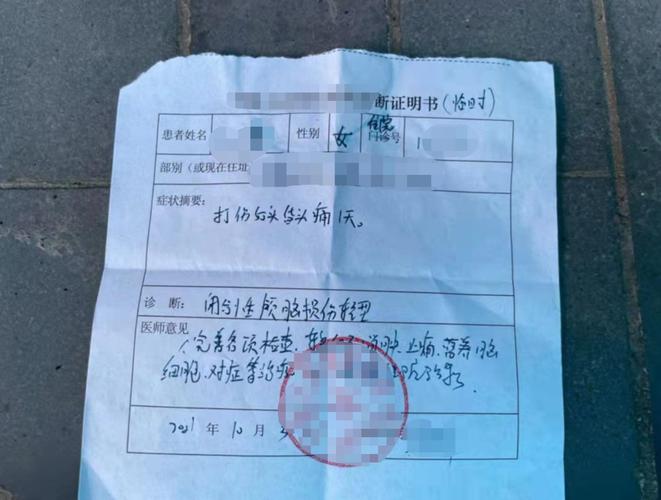 断证明书(临时)
患者姓名 性别 女 住院 门诊号
部别(或现在住址
症状摘要:
打伤后头昏头痛1天。
诊 断: 闭合性颅脑损伤轻型
医师意见
1、完善各项检查, 消肿、止痛、营养脑
细胞、对症等治疗
2021 年 10 月